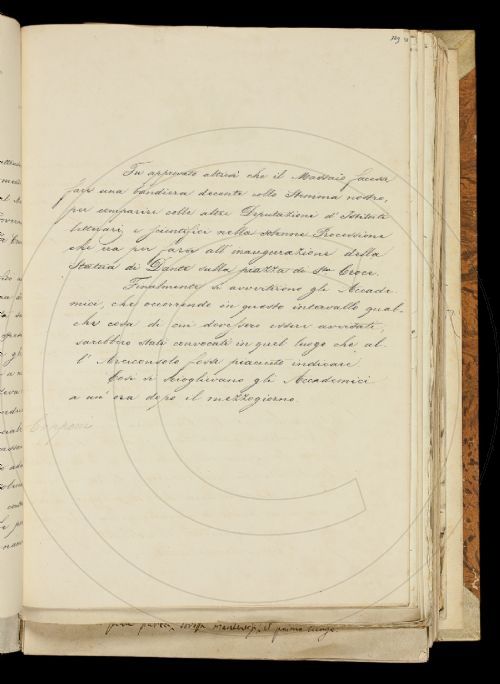 Fu approvato altresì che il Massaio facesse
fare una bandiera decente collo Stemma nostro,
per comparire colle altre Deputazioni d'Istituti
letterari, e scientifici nella solenne Processione
che era per farsi all'inaugurazione della
Statua di Dante sulla piazza di Sta Croce.
Finalmente si avvertirono gli Accade-
mici, che occorrendo in questo intervallo qual-
che cosa di cui dovessero essere avvertiti,
sarebbero stati convocati in quel luogo che al-
l'Arciconsolo fosse piaciuto indicare.
Così si scioglievano gli Accademici
a un'ora dopo il mezzogiorno.